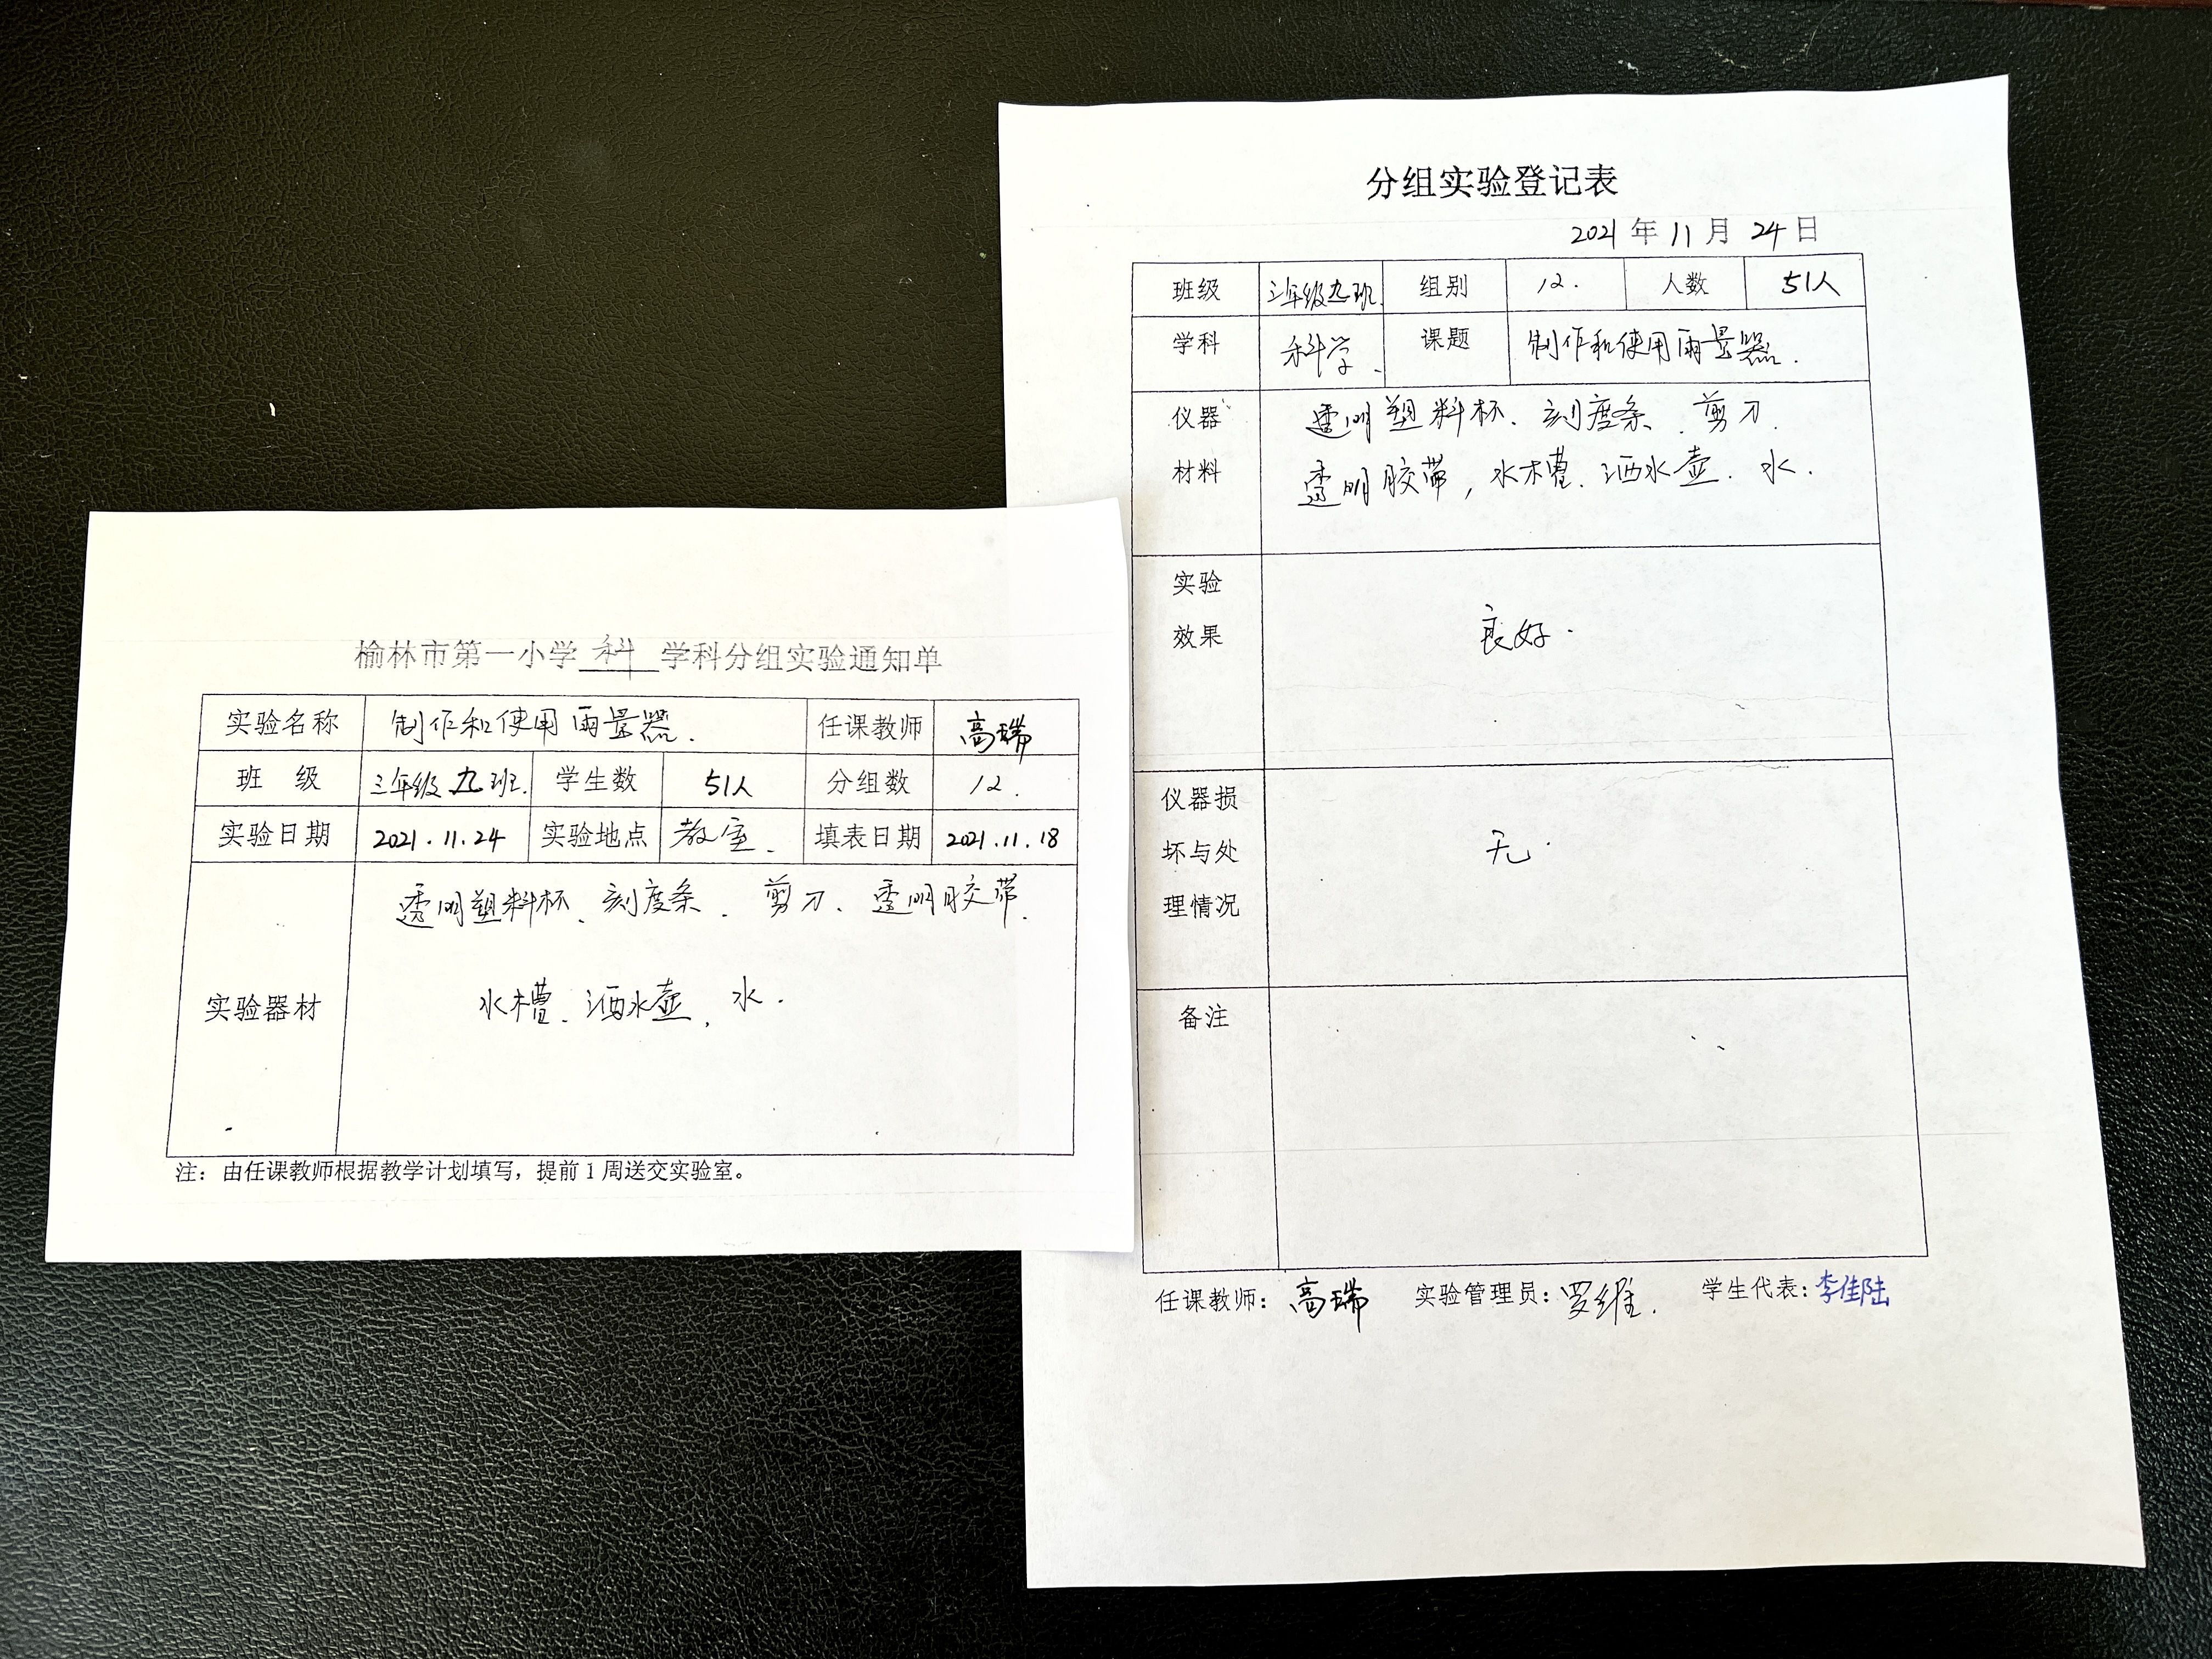 榆林市第一小学 科 学科分组实验通知单
实验名称 制作和使用雨量器. 任课教师 高瑞
班 级 三年级九班. 学生数 51人 分组数 12.
实验日期 2021.11.24 实验地点 教室. 填表日期 2021.11.18
实验器材 透明塑料杯、刻度条、剪刀、透明胶带、
水槽、洒水壶、水.
注：由任课教师根据教学计划填写，提前1周送交实验室。
分组实验登记表
2021 年 11 月 24 日
班级 三年级九班. 组别 12. 人数 51人
学科 科学. 课题 制作和使用雨量器.
仪器 透明塑料杯、刻度条、剪刀、
材料 透明胶带，水槽、洒水壶、水.
实验
效果 良好.
仪器损
坏与处 无.
理情况
备注
任课教师：高瑞 实验管理员：罗维. 学生代表：李佳陆